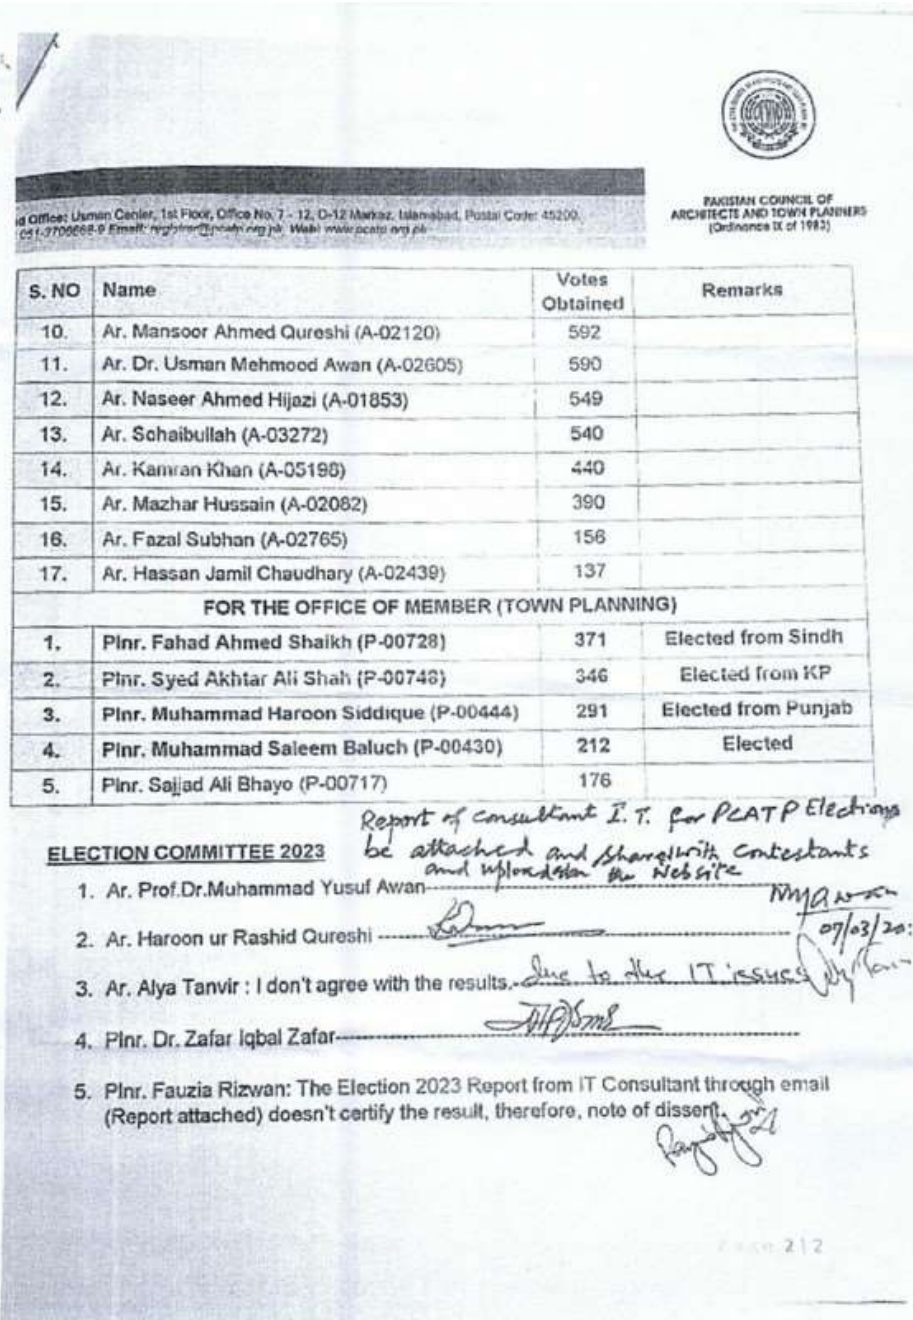 PAKISTAN COUNCIL OF
ARCHITECTS AND TOWN PLANNERS
(Ordinance IX of 1983)
Office: Usman Center, 1st Floor, Office No. 7 - 12, D-12 Markaz, Islamabad, Postal Code: 45200.
Email: registrar@pcatp.org.pk, Web: www.pcatp.org.pk
S. NO Name Votes Obtained Remarks
10. Ar. Mansoor Ahmed Qureshi (A-02120) 592
11. Ar. Dr. Usman Mehmood Awan (A-02605) 590
12. Ar. Naseer Ahmed Hijazi (A-01853) 549
13. Ar. Sohaibullah (A-03272) 540
14. Ar. Kamran Khan (A-05198) 440
15. Ar. Mazhar Hussain (A-02082) 390
16. Ar. Fazal Subhan (A-02765) 156
17. Ar. Hassan Jamil Chaudhary (A-02439) 137
FOR THE OFFICE OF MEMBER (TOWN PLANNING)
1. Plnr. Fahad Ahmed Shaikh (P-00728) 371 Elected from Sindh
2. Plnr. Syed Akhtar Ali Shah (P-00748) 346 Elected from KP
3. Plnr. Muhammad Haroon Siddique (P-00444) 291 Elected from Punjab
4. Plnr. Muhammad Saleem Baluch (P-00430) 212 Elected
5. Plnr. Sajjad Ali Bhayo (P-00717) 176
Report of consultant I.T. for PCATP Elections
be attached and shared with contestants
and uploaded on the Website
ELECTION COMMITTEE 2023
1. Ar. Prof.Dr.Muhammad Yusuf Awan
07/03/20
2. Ar. Haroon ur Rashid Qureshi
3. Ar. Alya Tanvir : I don't agree with the results. due to the IT issues
4. Plnr. Dr. Zafar Iqbal Zafar
5. Plnr. Fauzia Rizwan: The Election 2023 Report from IT Consultant through email
(Report attached) doesn't certify the result, therefore, note of dissent.
2|2